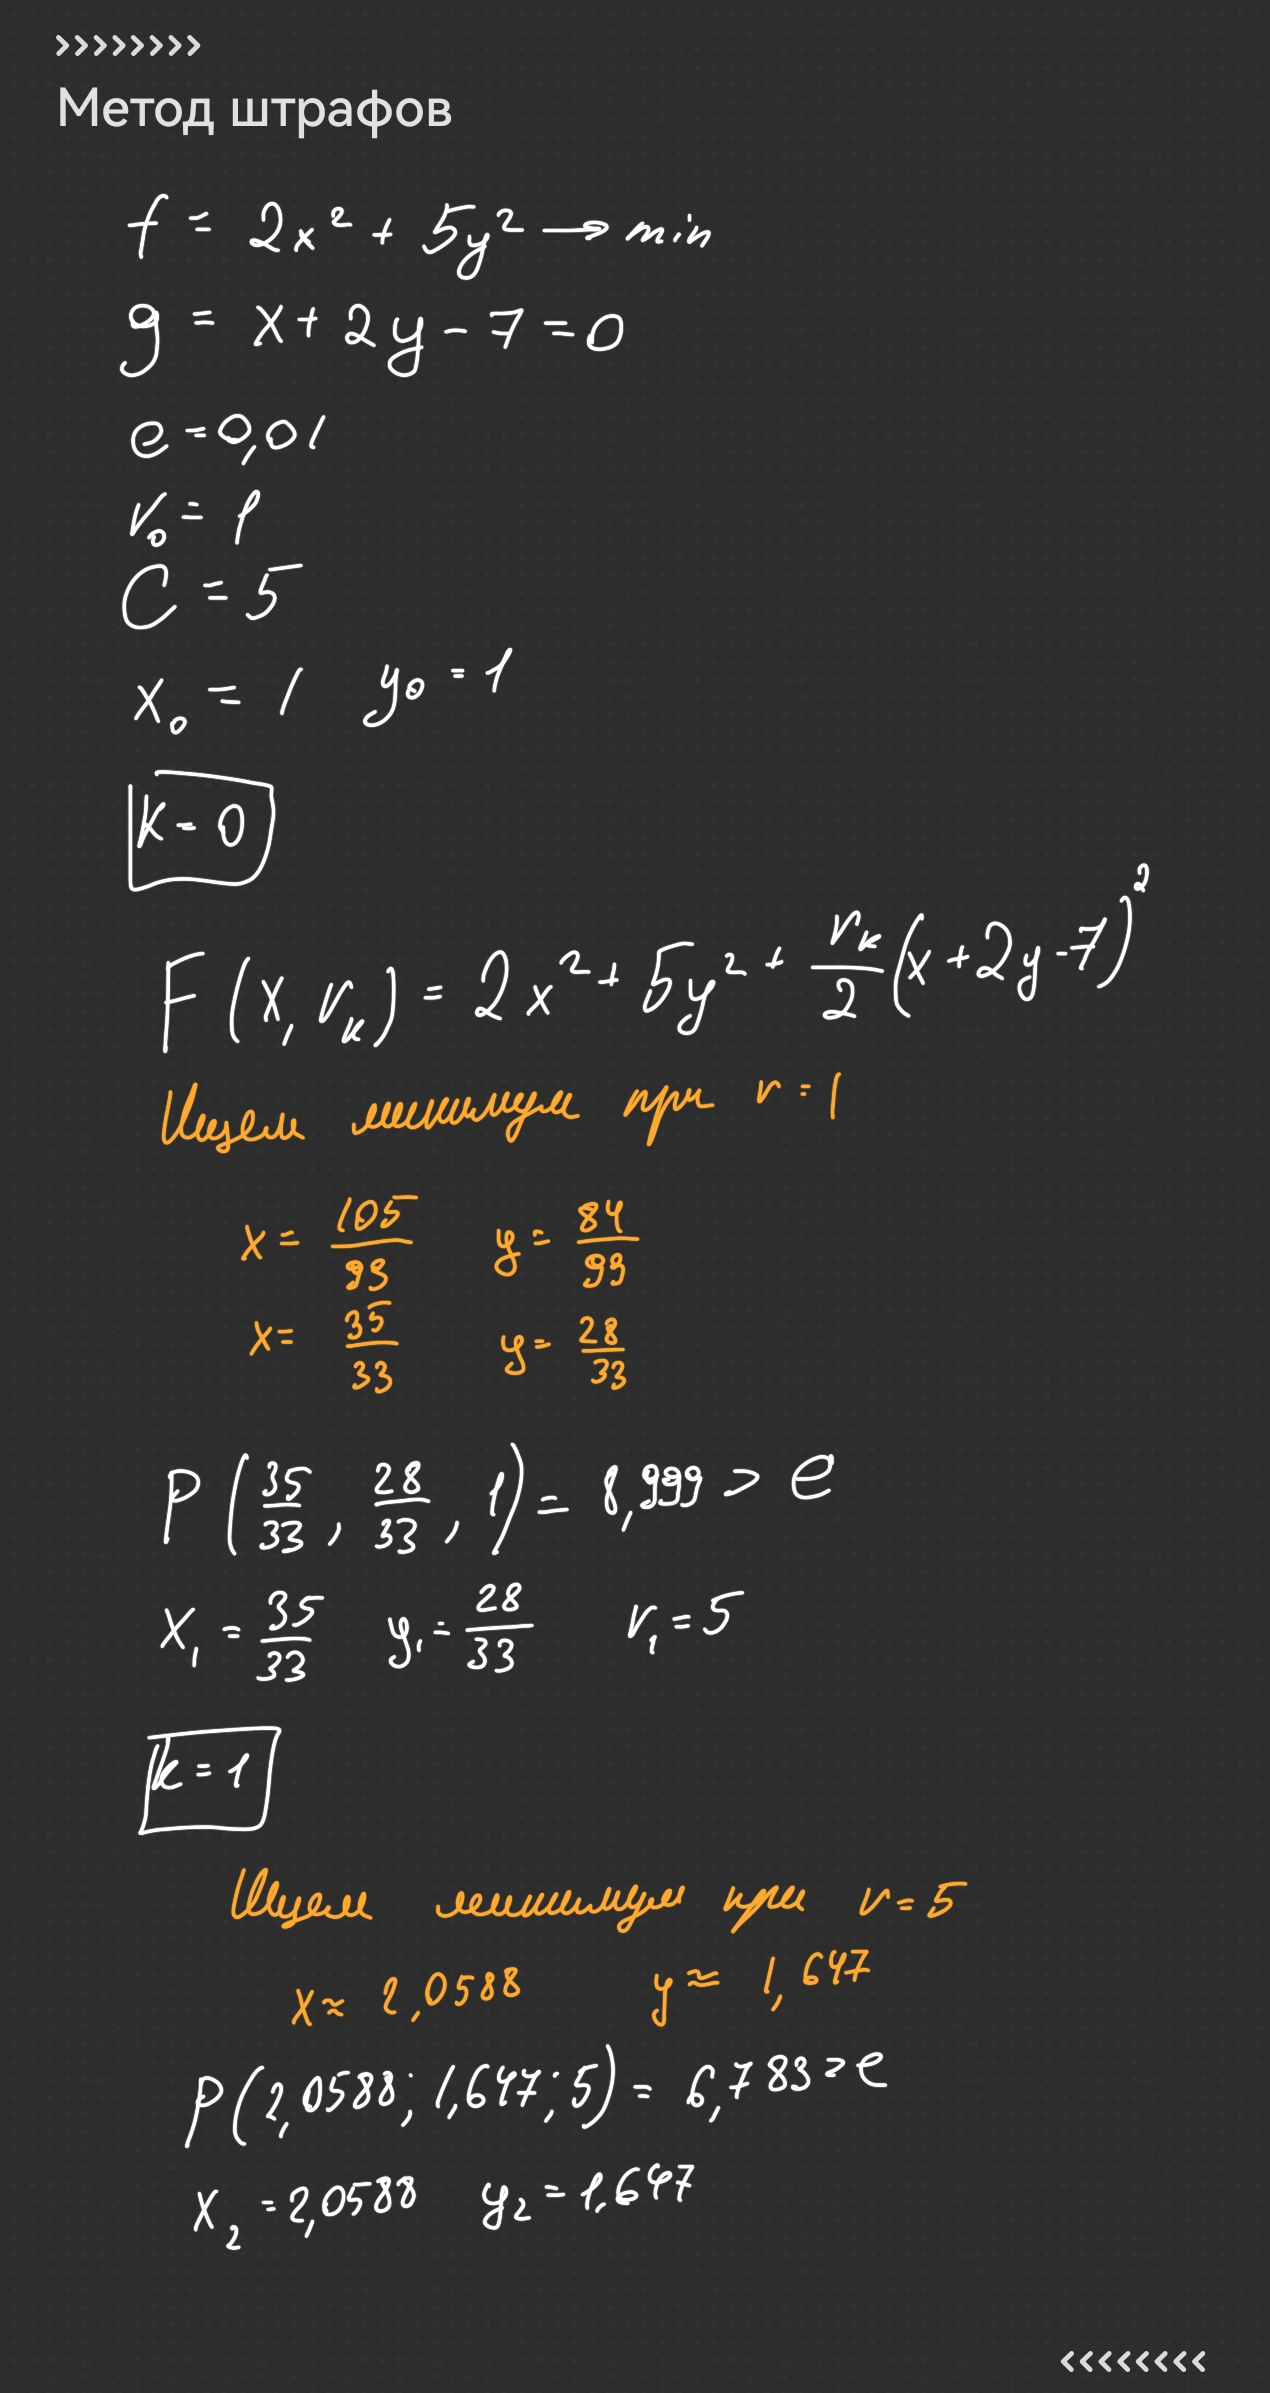 >>>>>>>>
Метод штрафов
f = 2x² + 5y² → min
g = x + 2y - 7 = 0
e = 0,01
r₀ = 1
C = 5
x₀ = 1 y₀ = 1
k = 0
F(x, rₖ) = 2x² + 5y² + rₖ/2 (x + 2y - 7)²
Ищем минимум при r = 1
x = 105/99 y = 84/99
x = 35/33 y = 28/33
P(35/33, 28/33, 1) = 8,999 > e
x₁ = 35/33 y₁ = 28/33 r₁ = 5
k = 1
Ищем минимум при r = 5
x ≈ 2,0588 y ≈ 1,647
P(2,0588; 1,647; 5) = 6,783 > e
x₂ = 2,0588 y₂ = 1,647
<<<<<<<<